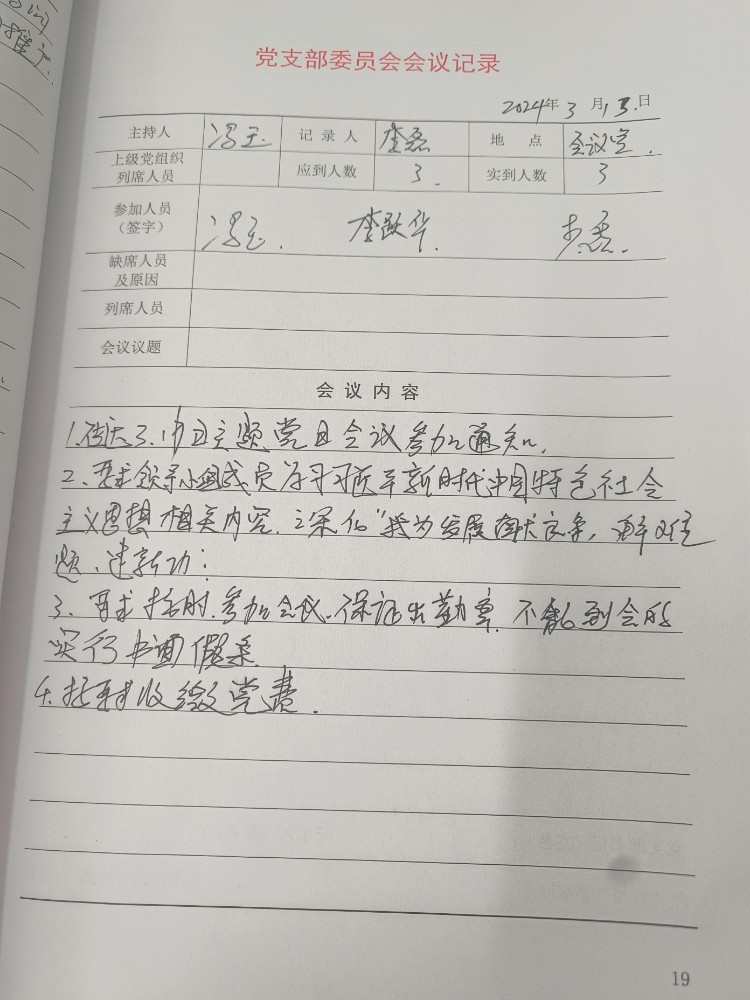 党支部委员会会议记录
2024年3月13日
主持人 冯玉 记录人 李磊 地点 会议室.
上级党组织列席人员 应到人数 3. 实到人数 3
参加人员(签字) 冯玉. 李跃华.
缺席人员及原因
列席人员
会议议题
会议内容
1. 3. 主题党日会议参加通知.
2. 要求领导小组成员学习习近平新时代中国特色社会
主义思想相关内容. 深化“我为发展献 解难
题、建新功:
3. 要求按时参加会议.保证出勤率.不能到会的
实行书面假条.
4. 按要求收缴党费.
19